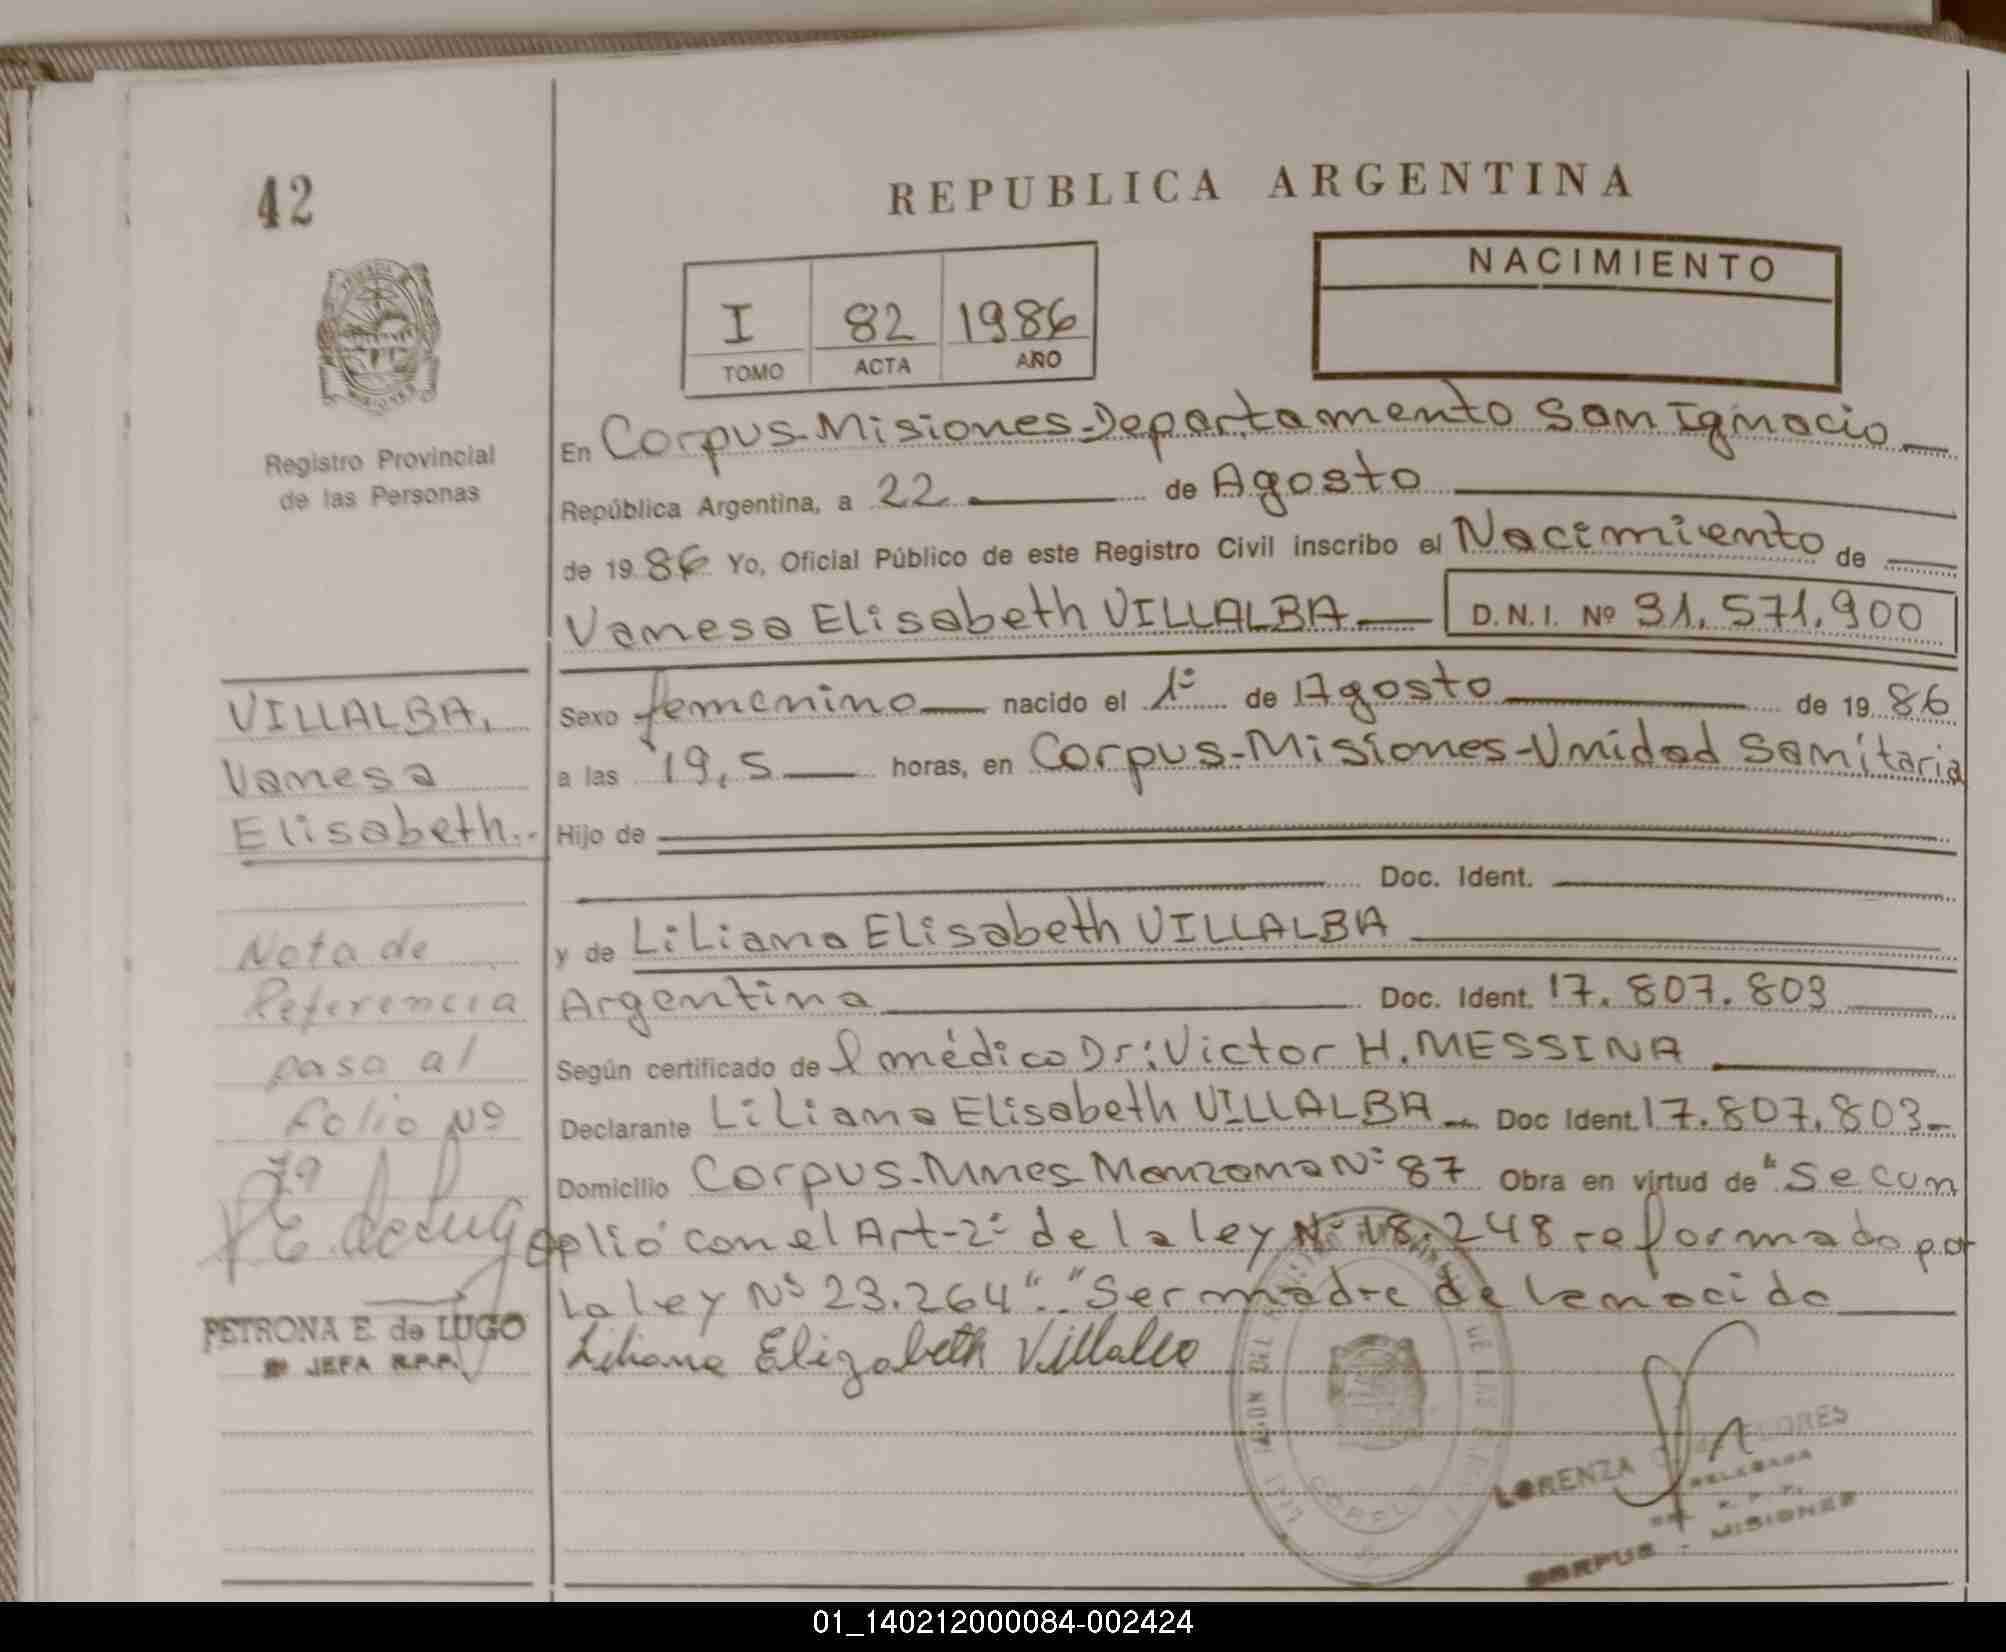 42
REPUBLICA ARGENTINA
NACIMIENTO
I 82 1986
TOMO ACTA AÑO
Registro Provincial
de las Personas
En Corpus-Misiones-Departamento San Ignacio
República Argentina, a 22 de Agosto
de 19 86 Yo, Oficial Público de este Registro Civil inscribo el Nacimiento de
Vanesa Elisabeth VILLALBA D.N.I. Nº 31.571.900
VILLALBA,
Vanesa
Elisabeth..
Sexo femenino nacido el 1º de Agosto de 19 86
a las 19,5 horas, en Corpus-Misiones-Unidad Sanitaria
Hijo de
Doc. Ident.
y de Liliana Elisabeth VILLALBA
Argentina Doc. Ident. 17.807.803
Según certificado de l médico Dr: Victor H. MESSINA
Declarante Liliana Elisabeth VILLALBA Doc Ident. 17.807.803-
Domicilio Corpus-Mnes-Manzana Nº 87 Obra en virtud de "Se cum
plió con el Art-2º de la ley Nº 18.248 reformado por
la ley Nº 23.264". "Ser madre de la nacida
Liliana Elizabeth Villalba
Nota de
Referencia
pasa al
Folio Nº
79
PETRONA E. de LUGO
JEFA R.P.P.
LORENZA FLORES
DELEGADA
R. P. P.
CORPUS - MISIONES
01_140212000084-002424